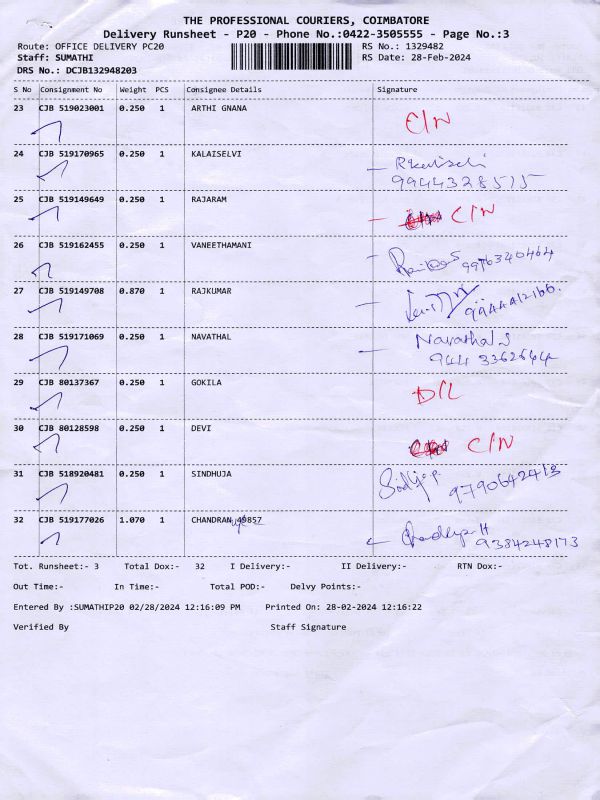 THE PROFESSIONAL COURIERS, COIMBATORE
Delivery Runsheet - P20 - Phone No.:0422-3505555 - Page No.:3
Route: OFFICE DELIVERY PC20 RS No.: 1329482
Staff: SUMATHI RS Date: 28-Feb-2024
DRS No.: DCJB132948203
S No Consignment No Weight PCS Consignee Details Signature
23 CJB 519023001 0.250 1 ARTHI GNANA
24 CJB 519170965 0.250 1 KALAISELVI
9944328515
25 CJB 519149649 0.250 1 RAJARAM C/N
26 CJB 519162455 0.250 1 VANEETHAMANI
27 CJB 519149708 0.870 1 RAJKUMAR
28 CJB 519171069 0.250 1 NAVATHAL Navathal S
29 CJB 80137367 0.250 1 GOKILA D/L
30 CJB 80128598 0.250 1 DEVI C/N
31 CJB 518920481 0.250 1 SINDHUJA 9790642413
32 CJB 519177026 1.070 1 CHANDRAN 49857 9384248173
Tot. Runsheet:- 3 Total Dox:- 32 I Delivery:- II Delivery:- RTN Dox:-
Out Time:- In Time:- Total POD:- Delvy Points:-
Entered By :SUMATHIP20 02/28/2024 12:16:09 PM Printed On: 28-02-2024 12:16:22
Verified By Staff Signature